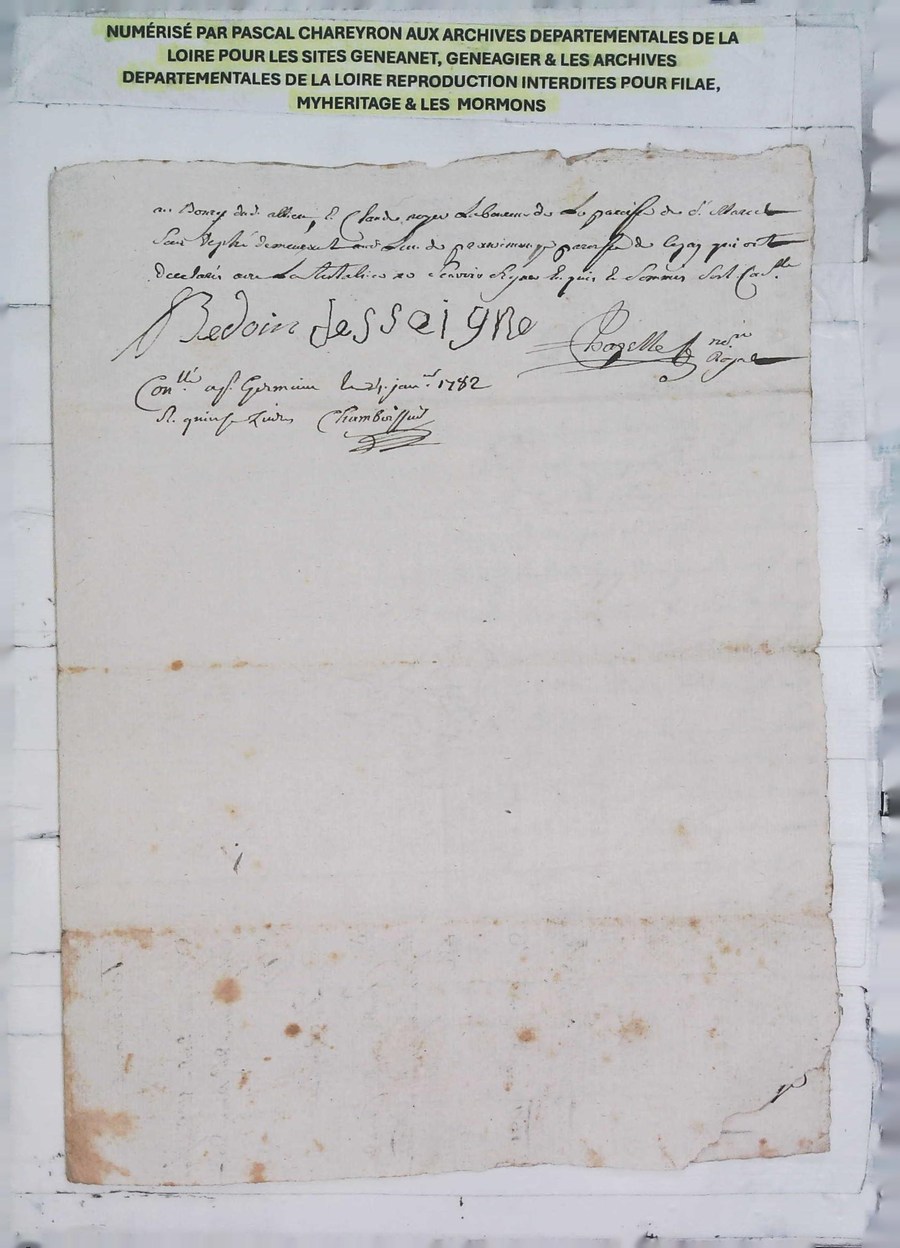 NUMÉRISÉ PAR PASCAL CHAREYRON AUX ARCHIVES DEPARTEMENTALES DE LA
LOIRE POUR LES SITES GENEANET, GENEAGIER & LES ARCHIVES
DEPARTEMENTALES DE LA LOIRE REPRODUCTION INTERDITES POUR FILAE,
MYHERITAGE & LES MORMONS
au Bourg dud. allieu, & Claude noyer Laboureur de La paroisse de st. Marcel
demeurant aud. Lieu de paroisse de cezay qui ont
declarés avec La testatrice ne Scavoir Signer Enquis & Sommés
Bedoin dessaigne
Chazelle nore Royal
Conllé a st. Germain le 24. janer 1782
R. quinse Livres